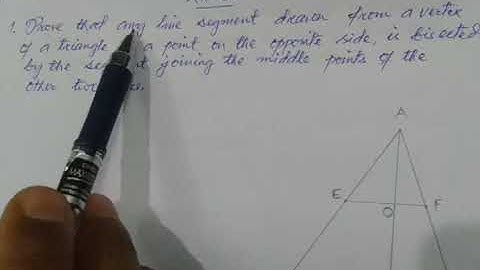 1. Prove that any line segment drawn from a vertex
of a triangle a point on the opposite side, is bisected
by the joining the middle points of the
other
A
E
O
F